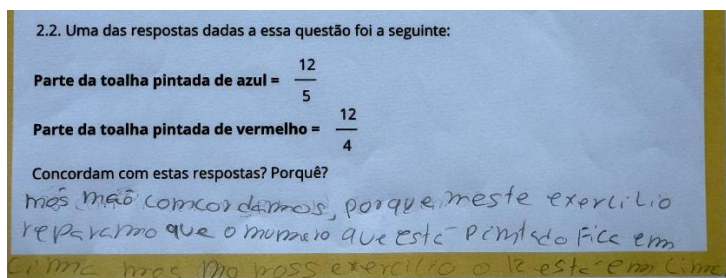 2.2. Uma das respostas dadas a essa questão foi a seguinte:
Parte da toalha pintada de azul = 12/5
Parte da toalha pintada de vermelho = 12/4
Concordam com estas respostas? Porquê?
mós mão comcordamos, porque meste exercilio
reparamo que o mumero que está pimtado fica em
cima mas mo moss exercicio o 12 está em cima